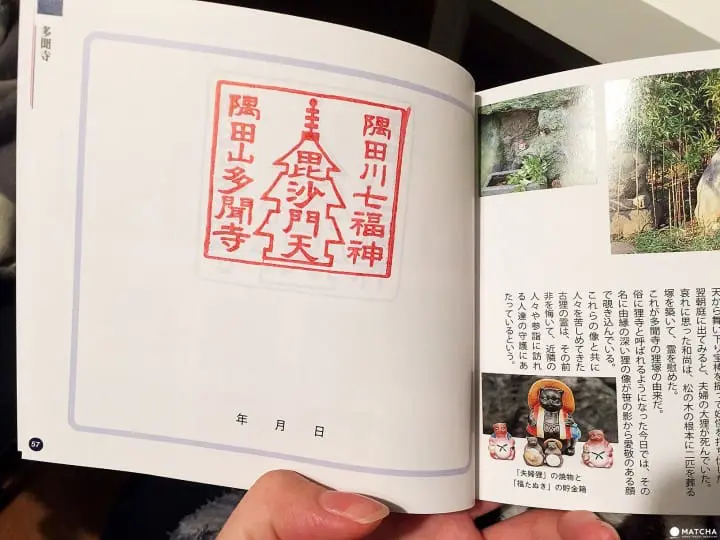 多聞寺
隅田川七福神
毘沙門天
隅田山多聞寺
年 月 日
57
翌朝庭に出てみると、夫婦の大狸が死んでいた。
哀れに思った和尚は、松の木の根本に二匹を葬る
塚を築いて、霊を慰めた。
これが多聞寺の狸塚の由来だ。
俗に狸寺と呼ばれるようになった今日では、その
名に由縁の深い狸の像が笹の影から愛敬のある顔
で覗き込んでいる。
これらの像と共に
人々を苦しめてきた
古狸の霊は、その前
非を悔いて、近隣の
人々や参詣に訪れ
る人達の守護にあ
たっているという。
「夫婦狸」の焼物と
「福たぬき」の貯金箱
MATCHA